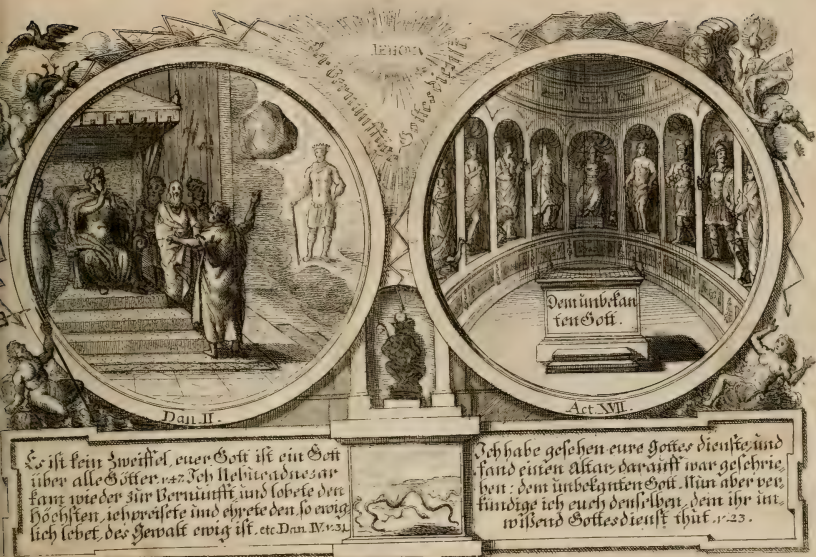 IEHOVA
Der Vernünfftige Gottesdienst
Dem unbekan
ten Gott.
Dan. II.
Act. XVII.
Es ist kein Zweiffel, euer Gott ist ein Gott
über alle Götter. v.47. Ich Nebucadnezar
kam wieder zur Vernunfft, und lobete den
Höchsten, ich preisete und ehrete den, so ewig
lich lebet, des Gewalt ewig ist. etc. Dan. IV. v. 31.
Ich habe gesehen eure Gottes dienste, und
fand einen Altar, darauff war geschrie,
ben: dem unbekanten Gott. Nun aber ver,
kündige ich euch denselben, dem ihr un,
wißend Gottesdienst thut. v. 23.